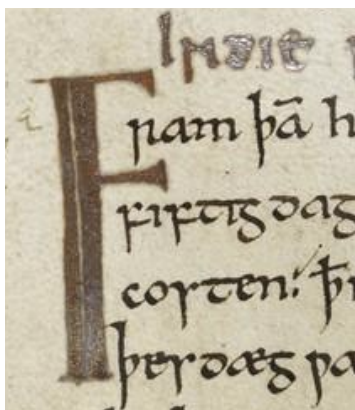 INDIE
Fram þā h
fiftigdag
costen: þ
þer dæg pa